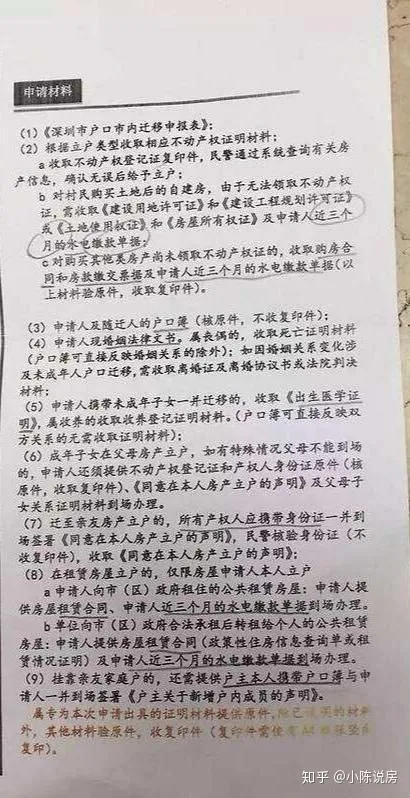 申请材料
(1)《深圳市户口市内迁移申报表》;
(2)根据立户类型收取相应不动产权证明材料:
a 收取不动产权登记证复印件,民警通过系统查询有关房
产信息,确认无误后给予立户;
b 对村民购买土地后的自建房,由于无法领取不动产权
证,需收取《建设用地许可证》和《建设工程规划许可证》
或《土地使用权证》和《房屋所有权证》及申请人近三个
月的水电缴款单据;
c 对购买其他类房产尚未领取不动产权证的,收取购房合
同和房款缴交票据及申请人近三个月的水电缴款单据(以
上材料验原件,收取复印件)。
(3)申请人及随迁人的户口簿(核原件,不收复印件);
(4)申请人现婚姻法律文书。属丧偶的,收取死亡证明材料
(户口簿可直接反映婚姻关系的除外);如因婚姻关系变化涉
及未成年人户口迁移,需收取离婚证及离婚协议书或法院判决
材料;
(5)申请人携带未成年子女一并迁移的,收取《出生医学证
明》,属收养的收取收养登记证明材料。(户口簿可直接反映双
方关系的无需收取证明材料);
(6)成年子女在父母房产立户,如有特殊情况父母不能到场
的,申请人还须提供不动产权登记证和产权人身份证原件(核
原件,收取复印件)、《同意在本人房产立户的声明》及父母子
女关系证明材料到场办理。
(7)迁至亲友房产立户的,所有产权人应携带身份证一并到
场签署《同意在本人房产立户的声明》,民警核验身份证(不
收复印件),收取《同意在本人房产立户的声明》;
(8)在租赁房屋立户的,仅限房屋申请人本人立户
a 申请人向市(区)政府租住的公共租赁房屋:申请人提
供房屋租赁合同、申请人近三个月的水电缴款单据到场办理。
b 单位向市(区)政府合法承租后转租给个人的公共租赁
房屋:申请人提供房屋租赁合同(政策性住房信息查询单或租
赁情况证明)及申请人近三个月的水电缴款单据到场办理。
(9)挂靠亲友家庭户的,还需提供户主本人携带户口簿与申
请人一并到场签署《户主关于新增户内成员的声明》。
属专为本次申请出具的证明材料提供原件,除已
外,其他材料验原件,收复印件(复印件需使
复印)。
知乎 @小陈说房